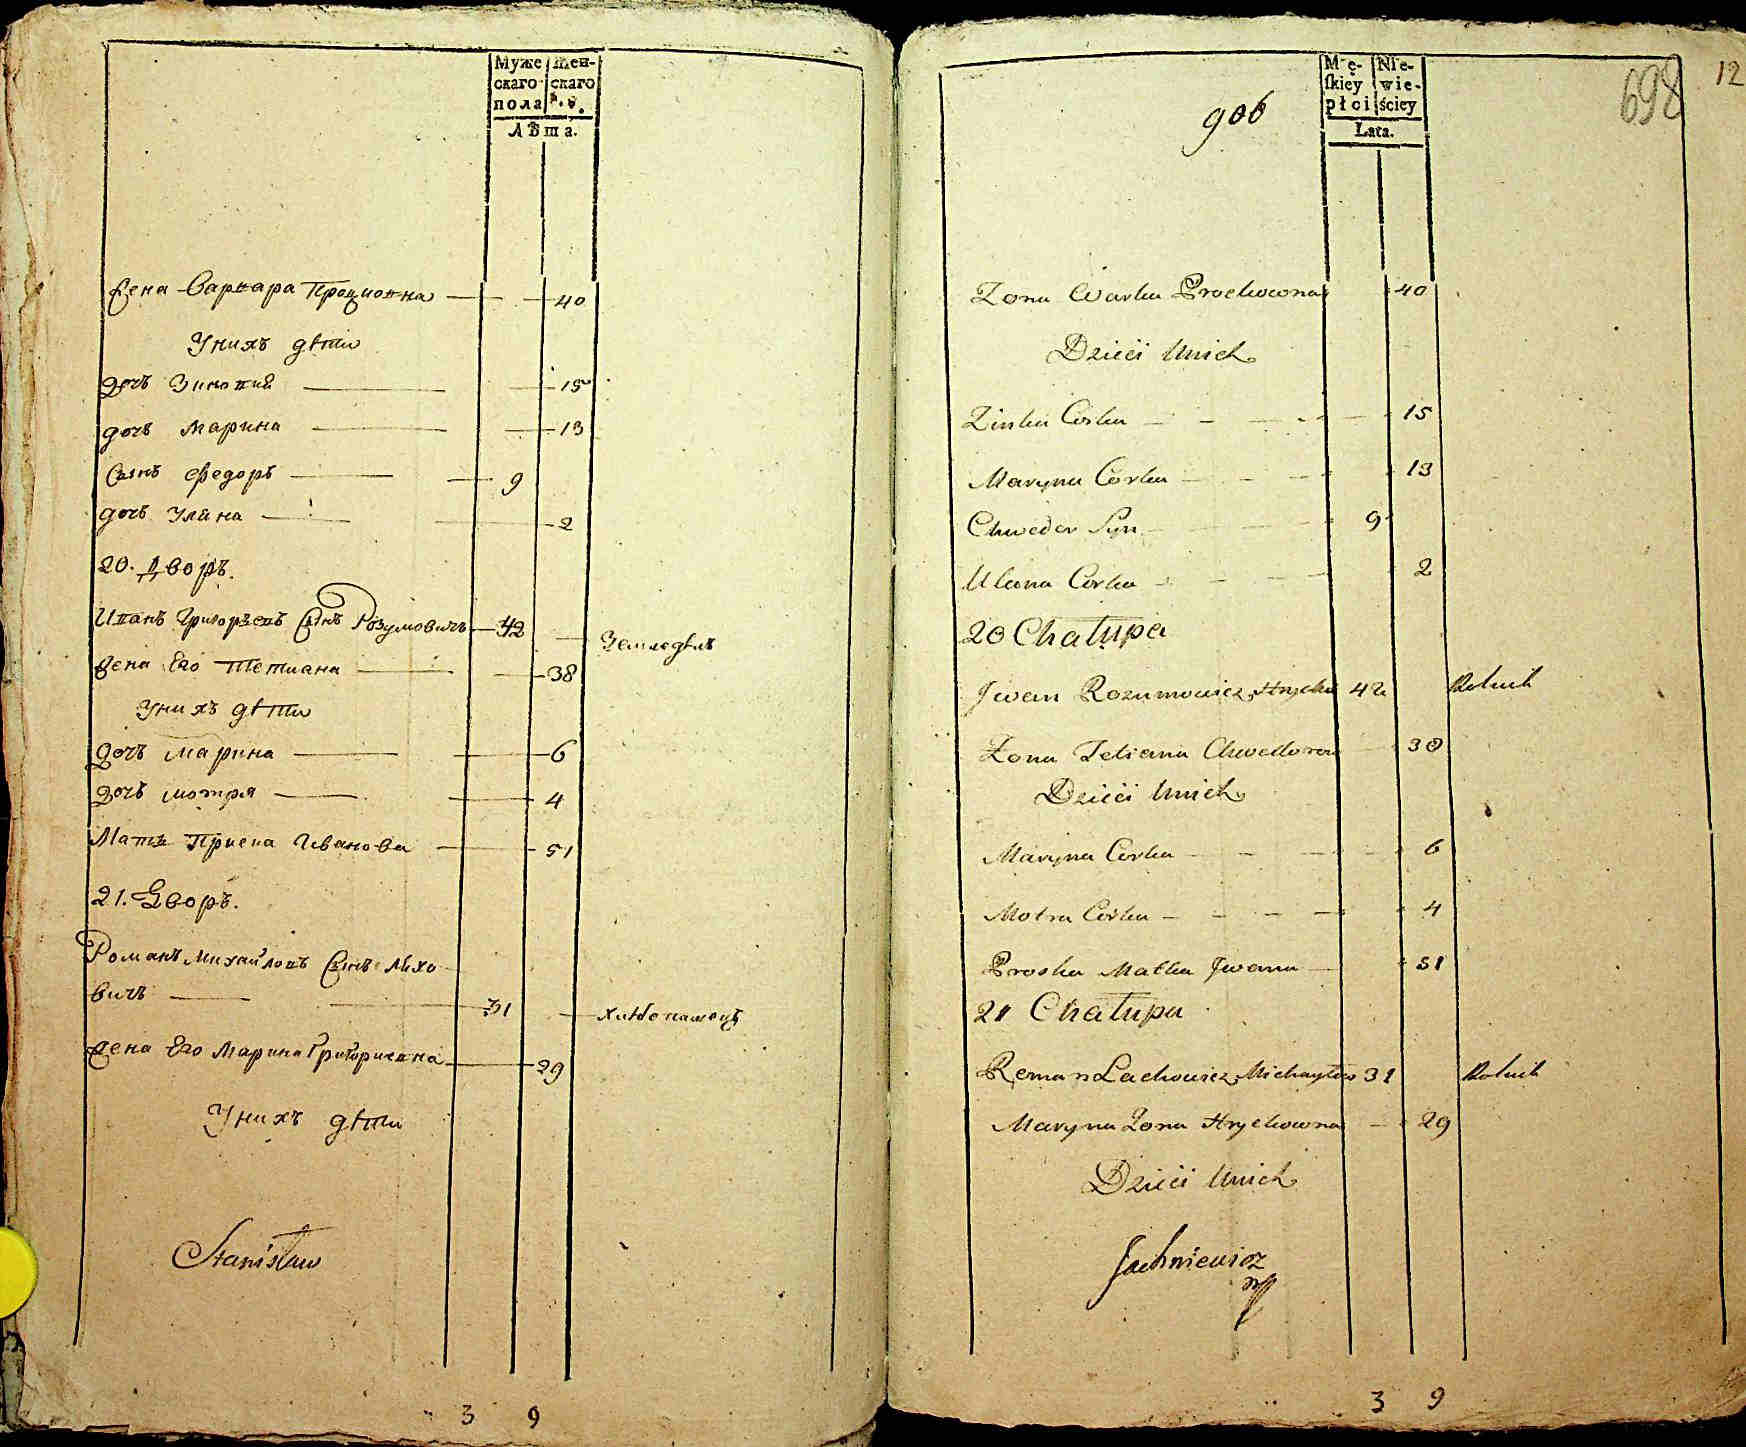 Муже
скаго
пола
Жен-
скаго
Лѣта.
Жена Варвара Процповна 40
У нихъ дѣти
дочь Зиновия 15
дочь Марина 13
Сынъ Федоръ 9
дочь Уляна 2
20. Дворъ.
Иванъ Григорьевъ Сынъ Розумовичъ 42 Земледѣлъ
Жена Его Тетиана 38
У нихъ дѣти
дочь Марина 6
дочь Мотря 4
Мать Приска Иванова 51
21. Дворъ.
Романъ Михайловъ Сынъ Ляхо
вичъ 31 хлѣбопашецъ
Жена Его Марина Григориевна 29
У нихъ дѣти
Stanisław
3 9
906
Mę-
skiey
płci
Nie-
wie-
ściey
Lata.
698
12
Zona Warka Prockowna 40
Dzieci Unich
Zinka Corka 15
Maryna Corka 13
Chweder Syn 9
Ulana Corka 2
20 Chałupa
Jwan Rozumowicz Hryćko 42 Rolnik
Zona Tetiana Chwedorowa 38
Dzieci Unich
Maryna Corka 6
Motra Corka 4
Proska Matka Jwana 51
21 Chałupa
Roman Lachowicz Michayłow 31 Rolnik
Maryna Zona Hryckowna 29
Dzieci Unich
Jachniewicz
mp
3 9